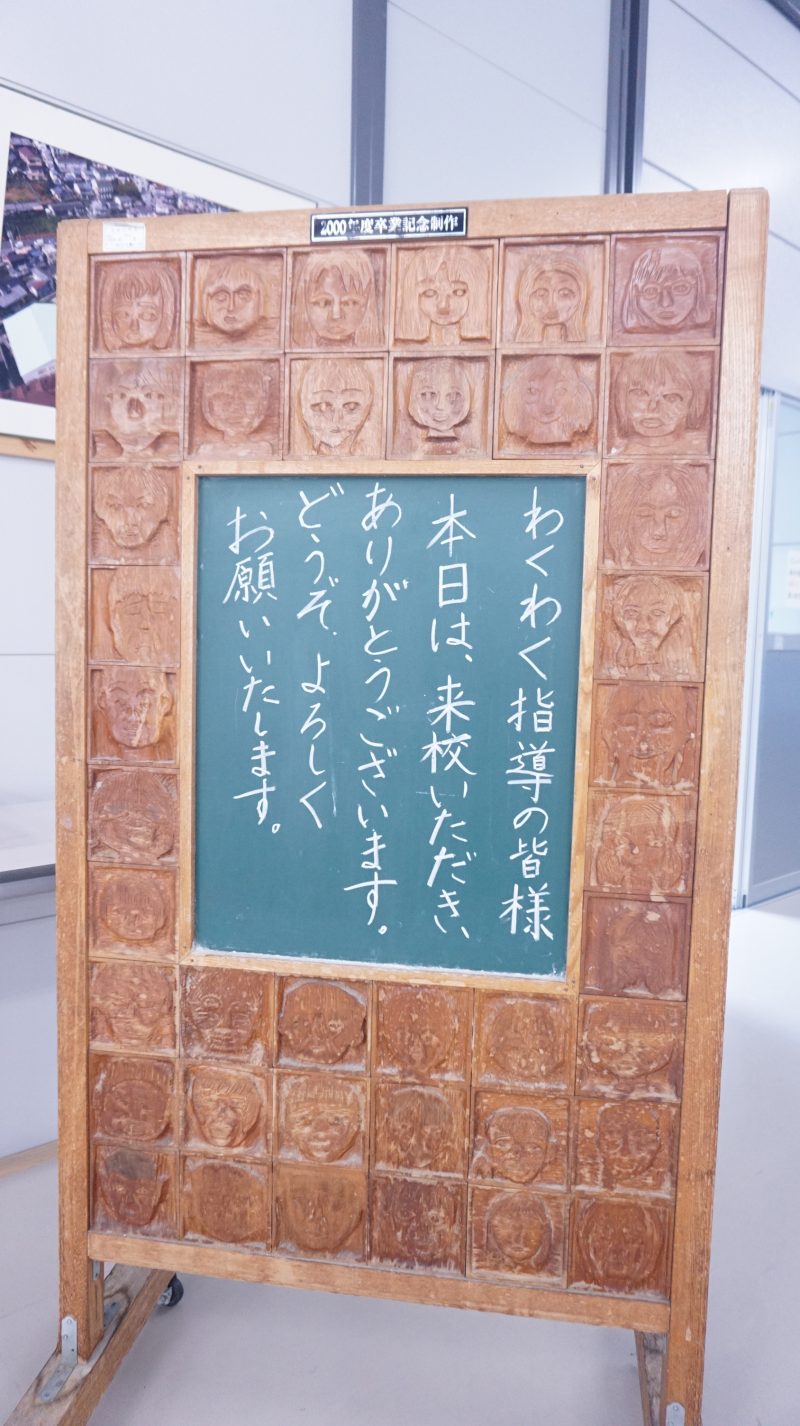 2000年度卒業記念制作
わくわく指導の皆様
本日は、来校いただき、
ありがとうございます。
どうぞ、よろしく
お願いいたします。